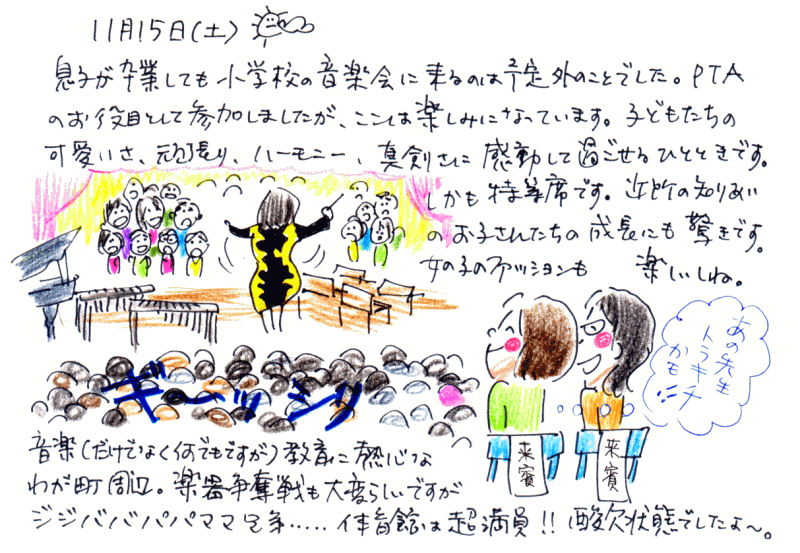 11月15日(土)
息子が卒業しても小学校の音楽会に来るのは予定外のことでした。PTA
のお役目として参加しましたが、ここんは楽しみになっています。子どもたちの
可愛いさ、頑張り、ハーモニー、真剣さに感動して過ごせるひとときです。
しかも特等席です。近所の知りあい
のお子さんたちの成長にも驚きです。
女の子のファッションも 楽しいしね。
あの先生
トラキチ
かも
ギーッシリ
来賓
来賓
音楽(だけでなく何でもですが)教育に熱心な
わが町周辺。楽器争奪戦も大変らしいですが
ジジババパパママ兄弟‥‥‥体育館は超満員!!酸欠状態でしたよ〜。